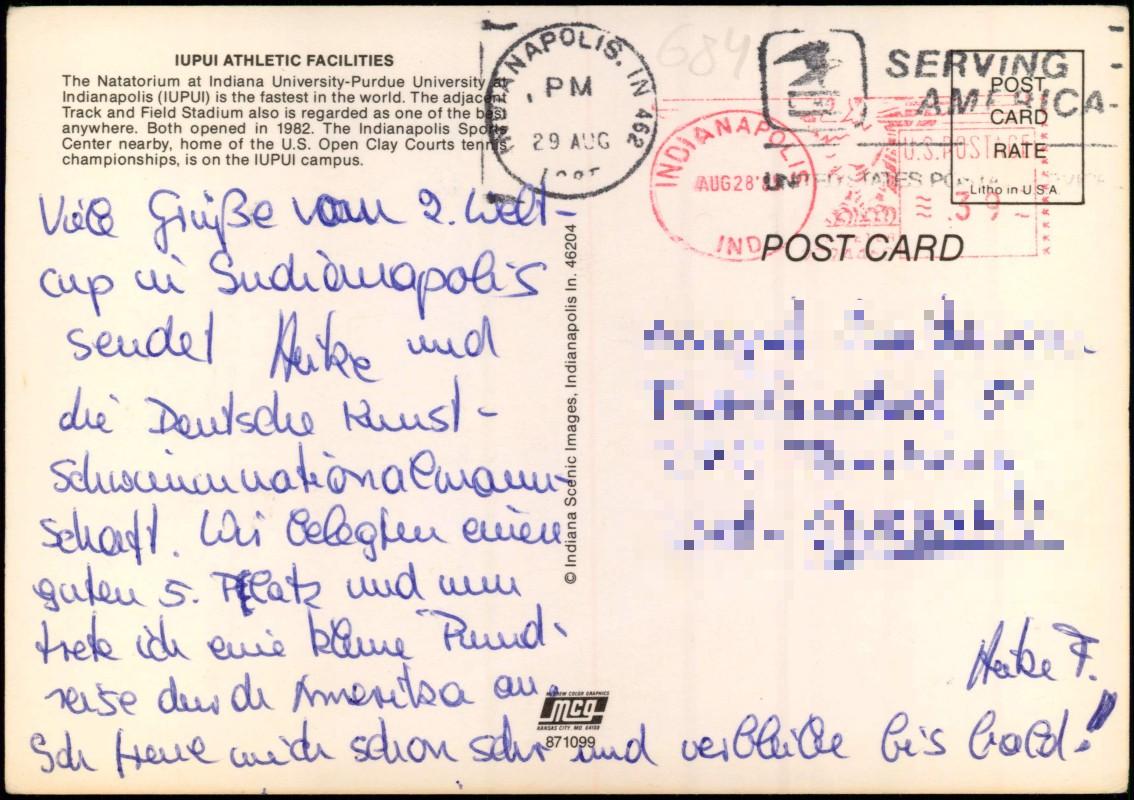 IUPUI ATHLETIC FACILITIES
The Natatorium at Indiana University-Purdue University at
Indianapolis (IUPUI) is the fastest in the world. The adjacent
Track and Field Stadium also is regarded as one of the best
anywhere. Both opened in 1982. The Indianapolis Sports
Center nearby, home of the U.S. Open Clay Courts tennis
championships, is on the IUPUI campus.
INDIANAPOLIS, IN 462
PM
29 AUG
684
SERVING
AMERICA
UNITED STATES POSTAL SERVICE
INDIANAPOLIS
AUG 28
IND
U.S. POSTAGE
.39
POST
CARD
RATE
Litho in U.S.A.
POST CARD
Viele Grüße vom 2. Welt-
cup in Indianapolis
sendet Heike und
die Deutsche Kunst-
schwimmnationalmann-
schaft. Wir belegten einen
guten 5. Platz und nun
trete ich eine kleine Rund-
reise durch Amerika an.
Ich freue mich schon sehr und verbleibe bis bald!
Heike F.
© Indiana Scenic Images, Indianapolis In. 46204
McGREW COLOR GRAPHICS
mcg
KANSAS CITY, MO. 64108
871099